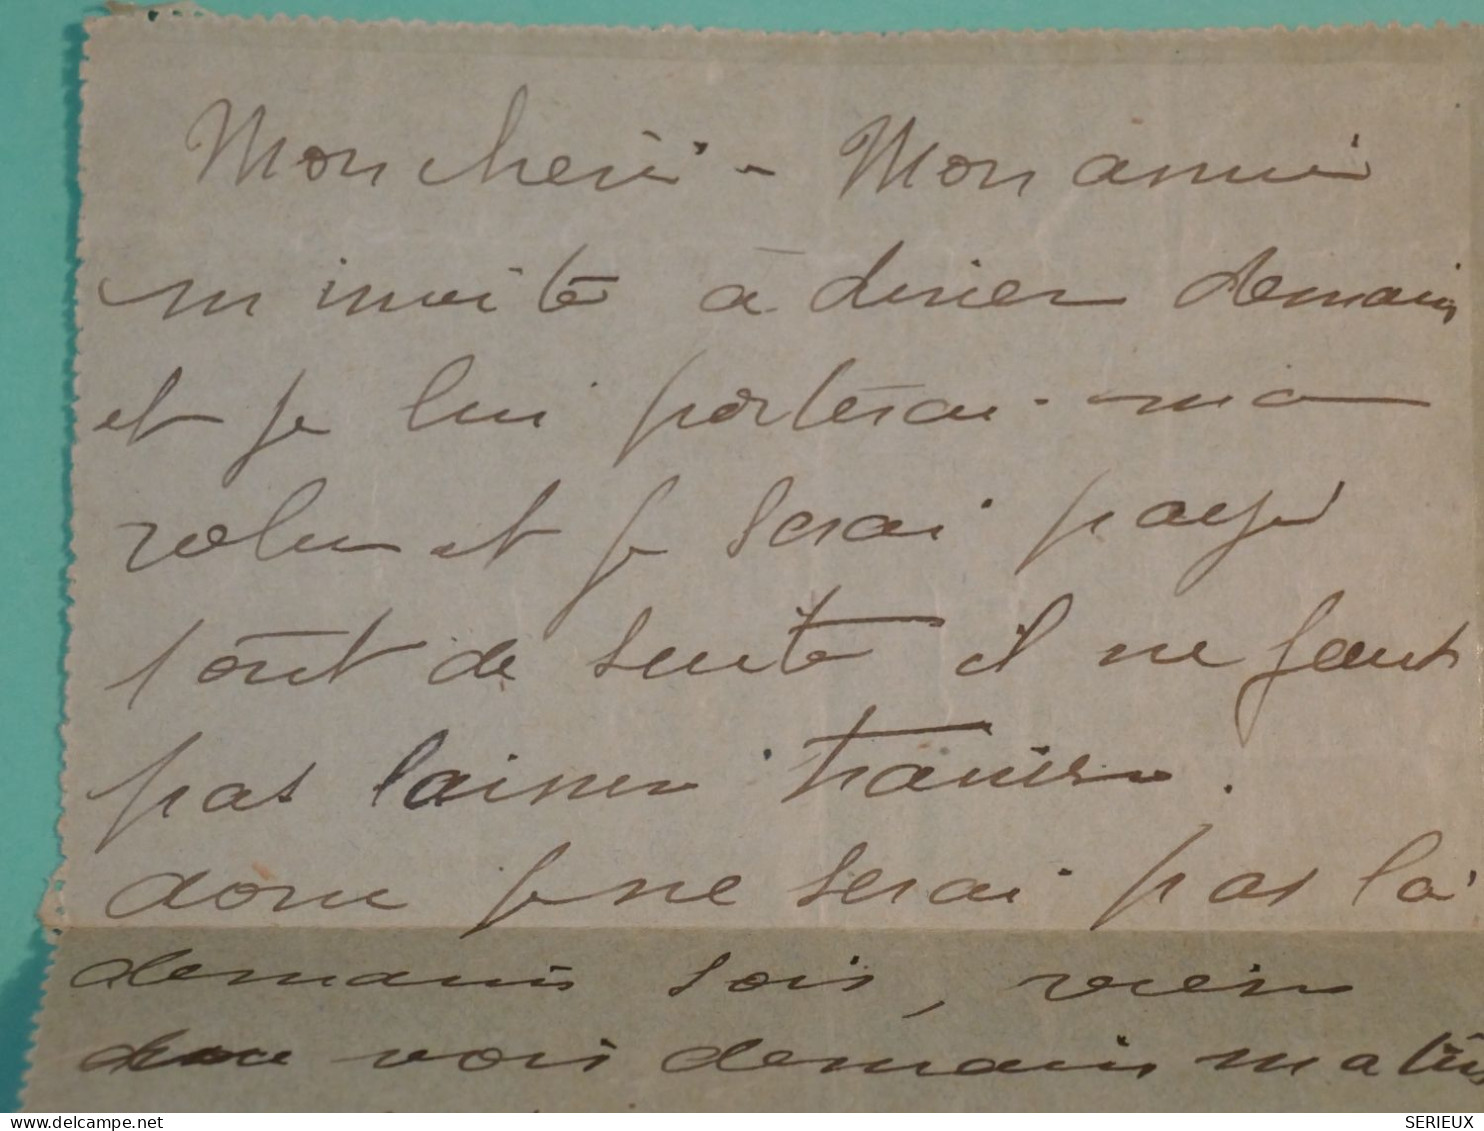 Mon cheri - Mon amie
m'invite à diner demain
et je lui porterai ma
robe et je serai payé
tout de suite il ne faut
pas laisser trainer.
donc je ne serai pas là
demain soir, viens
donc voir demain matin
SERIEUX